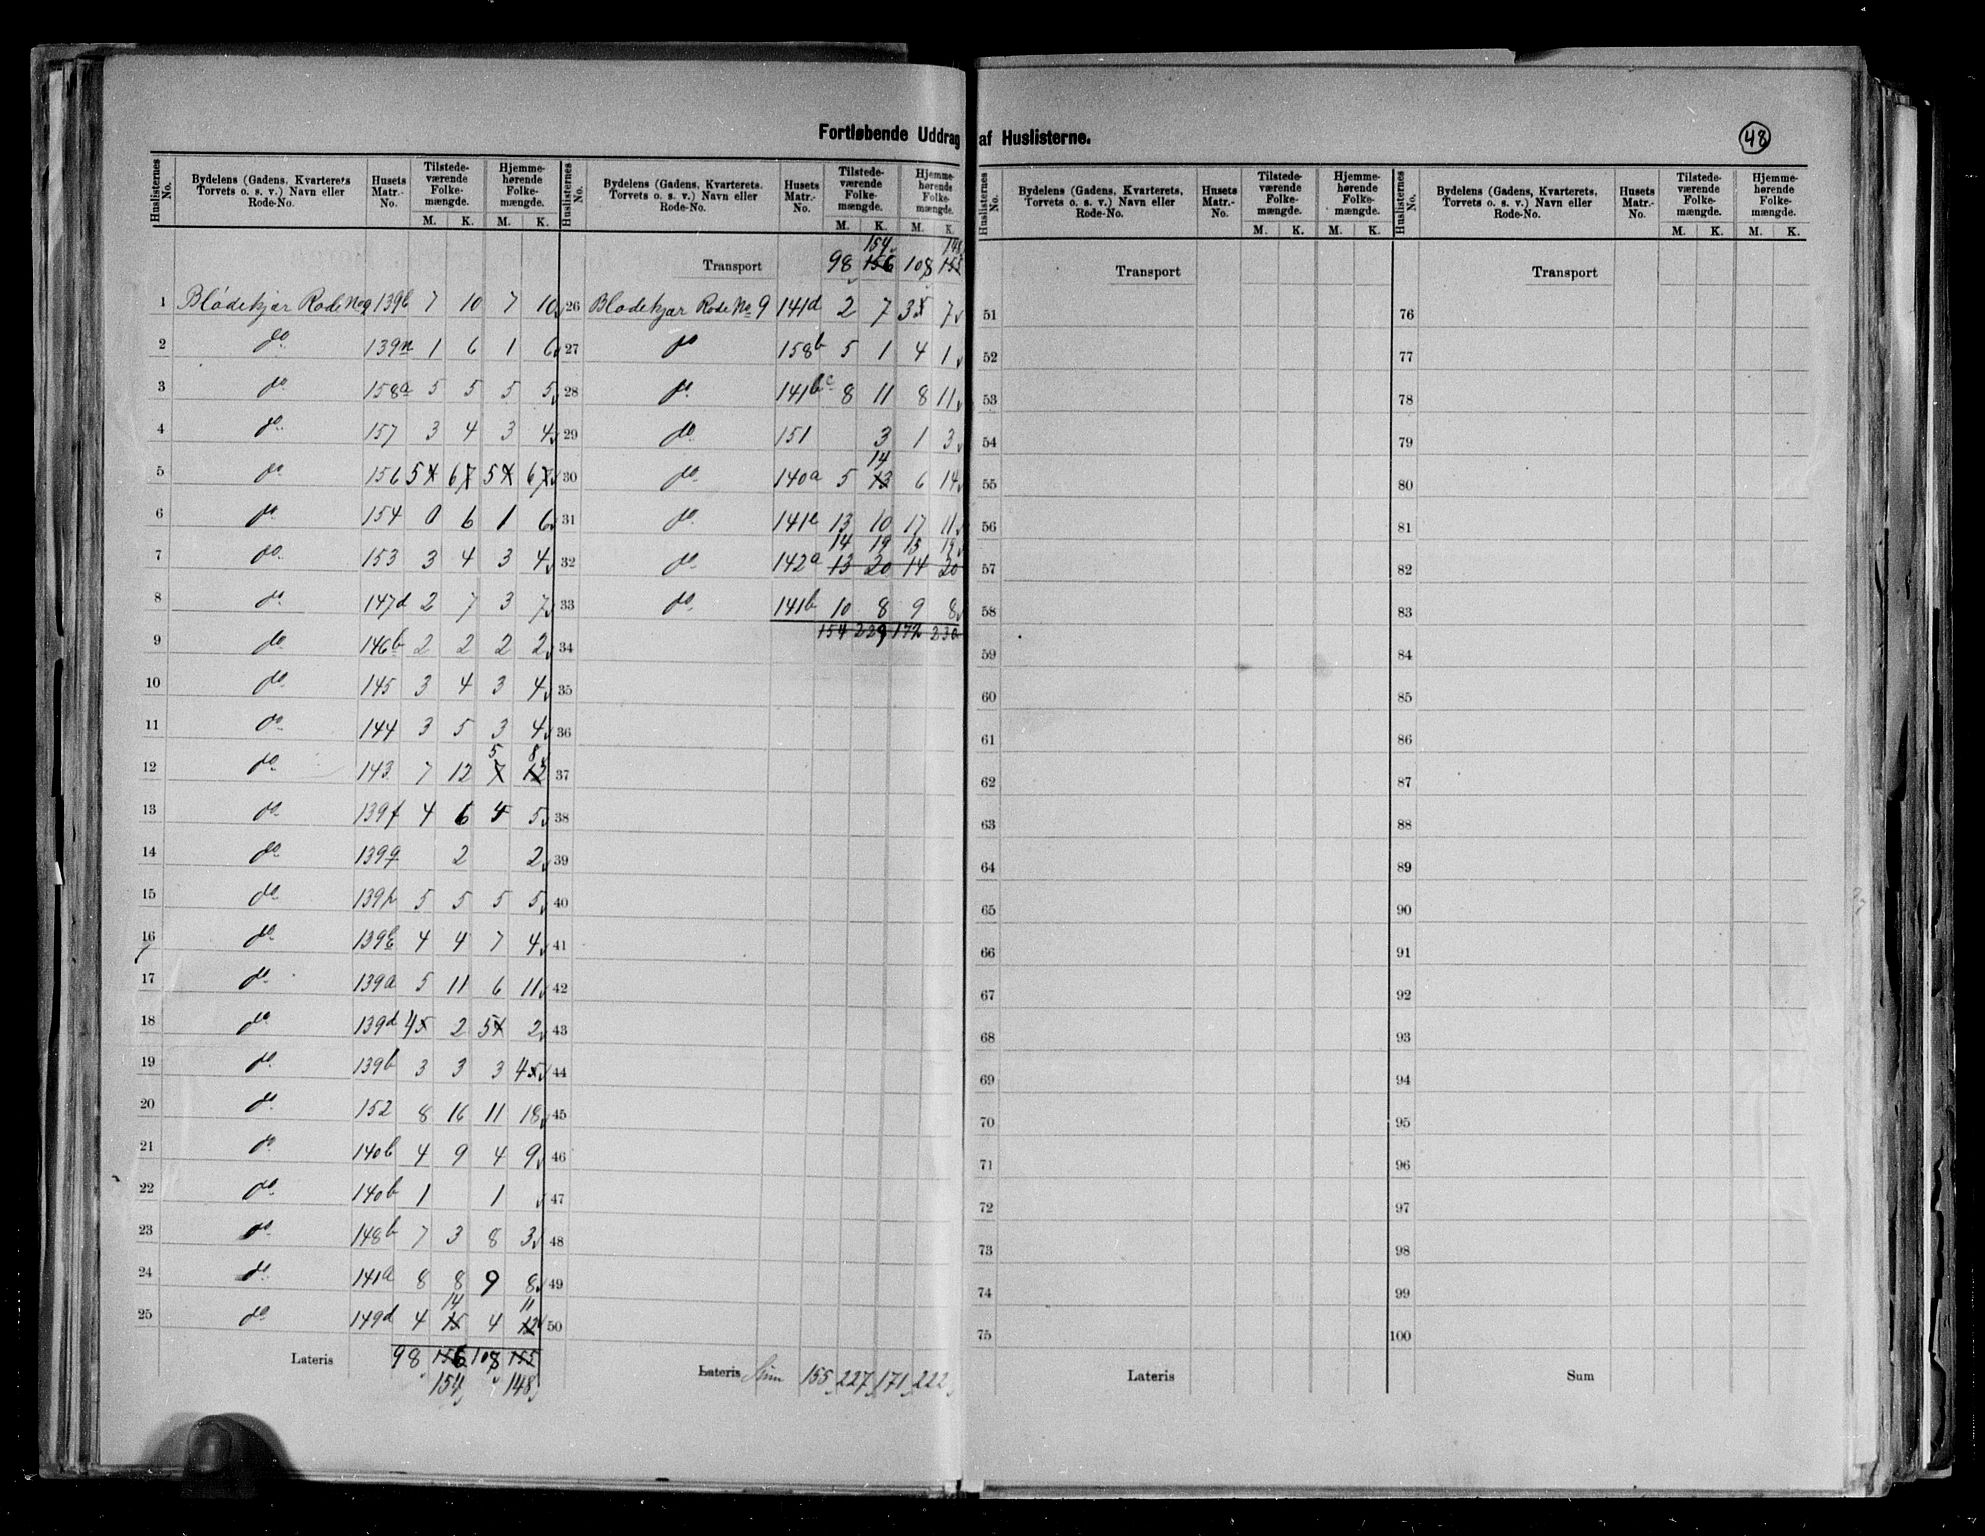 Fortløbende Uddrag af Huslisterne.
48
Huslisternes No. | Bydelens (Gadens, Kvarterets Torvets o. s. v.) Navn eller Rode-No. | Husets Matr.-No. | Tilstedeværende Folkemængde. M. K. | Hjemmehørende Folkemængde. M. K.
1 Blødekjær Rode No 9 139b 7 10 7 10
2 do 139n 1 6 1 6
3 do 158a 5 5 5 5
4 do 157 3 4 3 4
5 do 156 5 6 5 6
6 do 154 0 6 1 6
7 do 153 3 4 3 4
8 do 147d 2 7 3 7
9 do 146b 2 2 2 2
10 do 145 3 4 3 4
11 do 144 3 5 3 4
12 do 143 7 12 7 5 12 8
13 do 139f 4 6 4 5
14 do 139g 2 2
15 do 139h 5 5 5 5
16 do 139 4 4 7 4
17 do 139a 5 11 6 11
18 do 139d 4 5 2 5 4 2
19 do 139b 3 3 3 4 5
20 do 152 8 16 11 18
21 do 140b 4 9 4 9
22 do 140b 1 1
23 do 148b 7 3 8 3
24 do 141a 8 8 9 8
25 do 149d 4 15 14 4 12 11
Lateris 98 156 108 155
154 148
Huslisternes No. | Bydelens (Gadens, Kvarterets, Torvets o. s. v.) Navn eller Rode-No. | Husets Matr.-No. | Tilstedeværende Folkemængde. M. K. | Hjemmehørende Folkemængde. M. K.
154 148
Transport 98 156 108 155
26 Blødekjær Rode No 9 141d 2 7 3 5 7
27 do 158b 5 1 4 1
28 do 141bc 8 11 8 11
29 do 151 3 1 3
30 do 140a 5 13 14 6 14
31 do 141e 13 10 17 11
14 19 15 19
32 do 142a 13 20 14 20
33 do 141b 10 8 9 8
154 229 172 230
34
35
36
37
38
39
40
41
42
43
44
45
46
47
48
49
50
Lateris Sum 155 227 171 222
Huslisternes No. | Bydelens (Gadens, Kvarterets, Torvets o. s. v.) Navn eller Rode-No. | Husets Matr.-No. | Tilstedeværende Folkemængde. M. K. | Hjemmehørende Folkemængde. M. K.
Transport
51
52
53
54
55
56
57
58
59
60
61
62
63
64
65
66
67
68
69
70
71
72
73
74
75
Lateris
Huslisternes No. | Bydelens (Gadens, Kvarterets, Torvets o. s. v.) Navn eller Rode-No. | Husets Matr.-No. | Tilstedeværende Folkemængde. M. K. | Hjemmehørende Folkemængde. M. K.
Transport
76
77
78
79
80
81
82
83
84
85
86
87
88
89
90
91
92
93
94
95
96
97
98
99
100
Sum